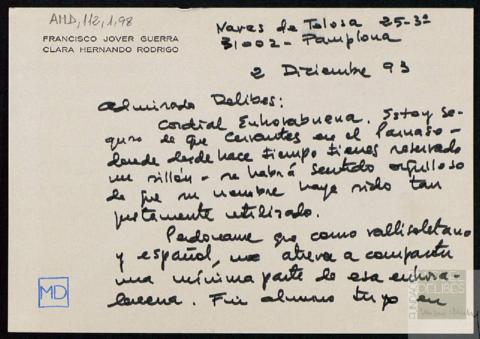 AMD, 112, 1, 98
FRANCISCO JOVER GUERRA
CLARA HERNANDO RODRIGO
Navas de Tolosa 25-3º
31002 - Pamplona
2 Diciembre 93
Admirado Delibes:
Cordial Enhorabuena. Estoy se-
guro de que Cervantes en el Parnaso -
donde desde hace tiempo tienes reservado
un sillón - se habrá sentido orgulloso
de que su nombre haya sido tan
justamente utilizado.
Perdoneme que como vallisoletano
y español, me atreva a compartir
una mínima parte de esa enhora-
buena. Fui alumno suyo en
MD
FUNDACIÓN
DELIBES